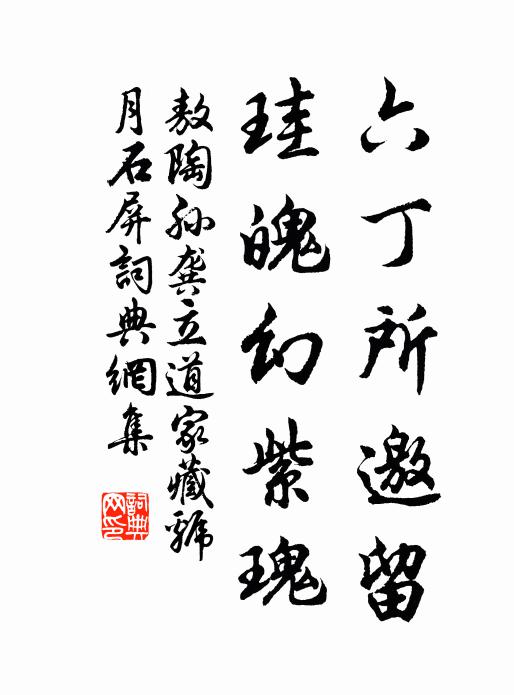 六丁所邀留
珪魄幻紫瑰
敖陶孙龚立道家藏號
月石屏詞典網集
詞典网印